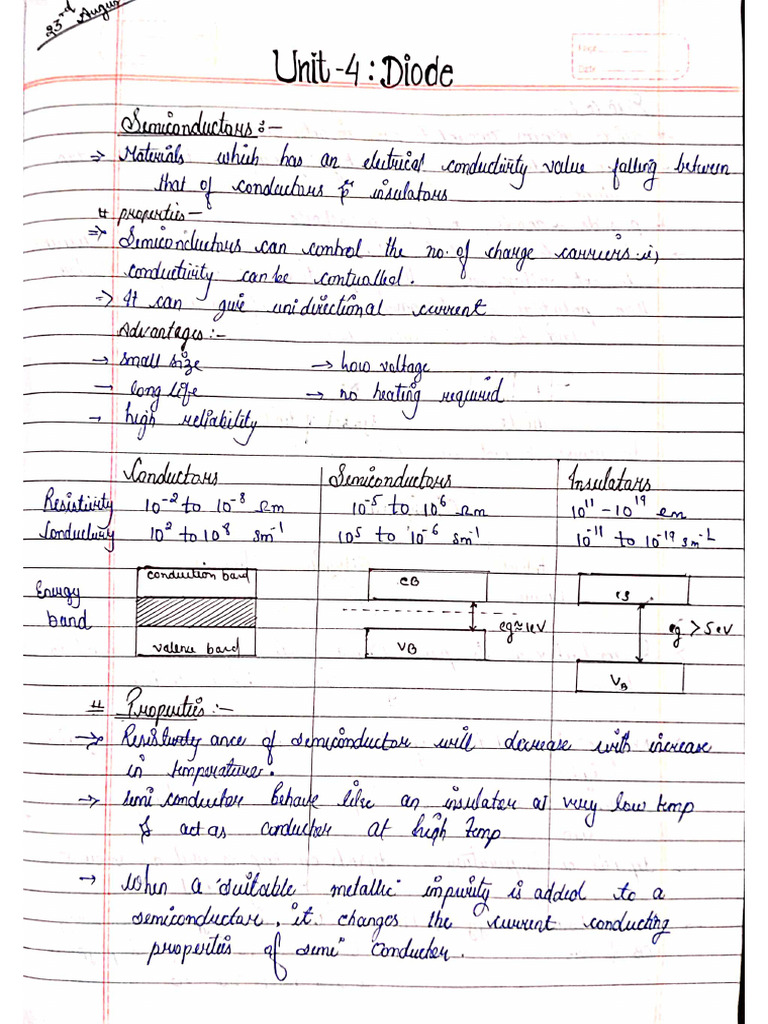 23rd August
Unit-4: Diode
Semiconductors :-
⇒ Materials which has an electrical conductivity value falling between
that of conductors & insulators
# properties-
⇒ Semiconductors can control the no. of charge carriers i.e,
conductivity can be contualled.
→ It can give unidirectional current
Advantages :-
→ small size → low voltage
→ long life → no heating required
→ high reliability
Conductors Semiconductors Insulators
Resistivity 10⁻² to 10⁻⁸ Ωm 10⁻⁵ to 10⁶ Ωm 10¹¹ - 10¹⁹ Ωm
Conductivity 10² to 10⁸ sm⁻¹ 10⁵ to 10⁻⁶ sm⁻¹ 10⁻¹¹ to 10⁻¹⁹ sm⁻¹
conduction band CB CB
Energy
band eg≈1eV eg > 5eV
valence band VB VB
# Properties :-
→ Resistivity ance of semiconductor will decrease with increase
in temperature.
→ semi conductor behave like an insulator at very low temp
& act as conductor at high temp
→ When a suitable metallic impurity is added to a
semiconductor, it changes the current conducting
properties of semi conductor.